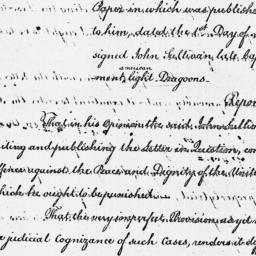 Paper in which was publishe
to him, dated the 1st Day of
signed John Sullivan late Cap
american
ment, light Dragoons.
Repor
That in his Opinion the said John Sulli
ding and publishing the Letter in Question, com
ffence against the Peace and Dignity of the Unite
hich he ought to be punished.
That the very imperfect Provision as yet
e judicial Cognizance of such Cases, renders it de